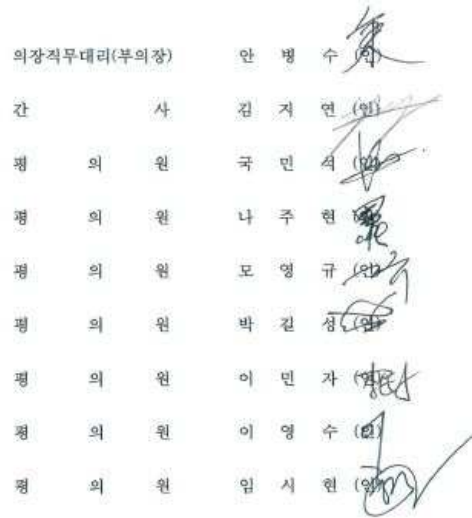 의장직무대리(부의장) 안 병 수 (인)
간 사 김 지 연 (인)
평 의 원 국 민 석 (인)
평 의 원 나 주 현
평 의 원 모 영 규 (인)
평 의 원 박 길 성 (인)
평 의 원 이 민 자 (인)
평 의 원 이 영 수 (인)
평 의 원 임 시 현 (인)